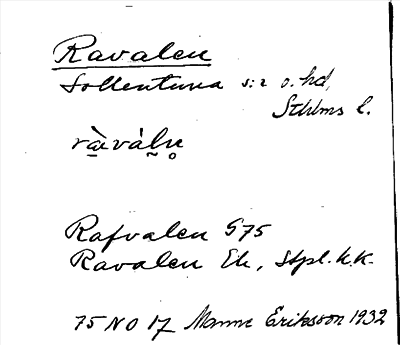 Ravalen
Sollentuna s:n o. hd,
Sthlms l.
rà̱vál̰n̥
Rafvalen G75
Ravalen Ek, Stpl. k.k.
75 NO 17 Manne Eriksson 1932